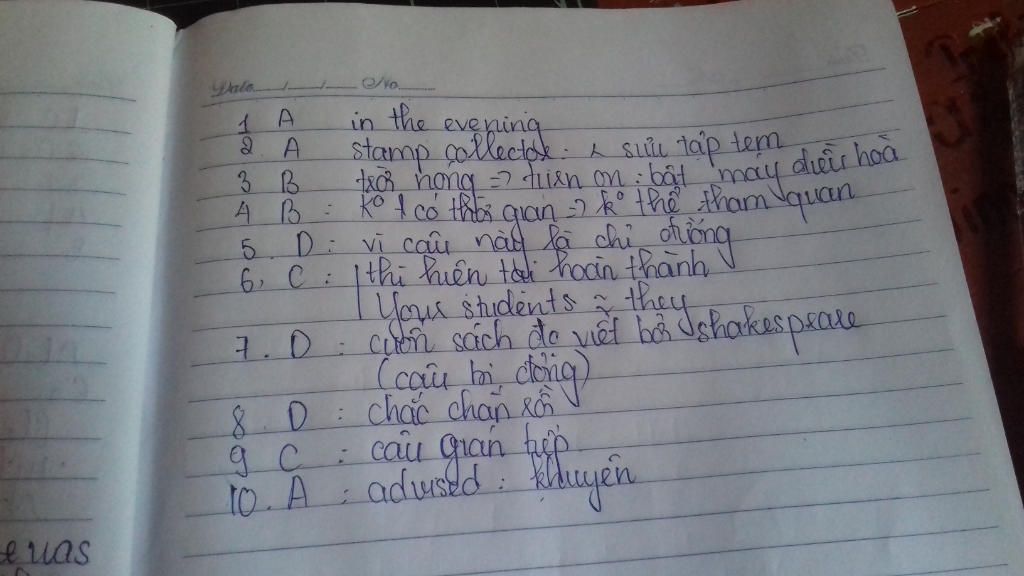 Date / / No
1 A in the evening
2. A stamp collector: sưu tập tem
3 B trời nóng => turn on: bật máy điều hoà
4 B: k° có thời gian => k° thể tham quan
5. D: vì câu này là chỉ đường
6, C: thì hiện tại hoàn thành
Your students ~ they
7. D: cuốn sách đc viết bởi shakespeare
(câu bị động)
8. D: chắc chắn rồi
9 C: câu gián tiếp
10. A: advised: khuyên
e was